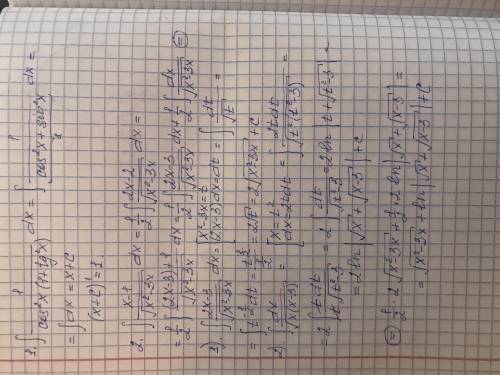 1. ∫ 1/(cos²x(1+tg²x)) dx = ∫ 1/(cos²x + sin²x) dx =
1
= ∫ dx = x + C
(x+C)' = 1
2. ∫ (x-1)/√(x²-3x) dx = 1/2 ∫ (2x-2)/√(x²-3x) dx =
= 1/2 ∫ ((2x-3)+1)/√(x²-3x) dx = 1/2 ∫ (2x-3)/√(x²-3x) dx + 1/2 ∫ dx/√(x²-3x) ⊜
1) ∫ (2x-3)/√(x²-3x) dx = [x²-3x=t; (2x-3)dx=dt] = ∫ dt/√t =
= ∫ t^(-1/2) dt = t^(1/2)/(1/2) = 2√t = 2√(x²-3x) + C
2) ∫ dx/√(x(x-3)) = [x=t²; dx=2tdt] = ∫ 2tdt/√(t²(t²-3)) =
= 2 ∫ tdt/(t√(t²-3)) = 2 ∫ dt/√(t²-3) = 2ln|t+√(t²-3)| =
= 2ln|√x + √(x-3)| + C
⊜ 1/2 · 2√(x²-3x) + 1/2 · 2ln|√x + √(x-3)| =
= √(x²-3x) + ln|√x + √(x-3)| + C